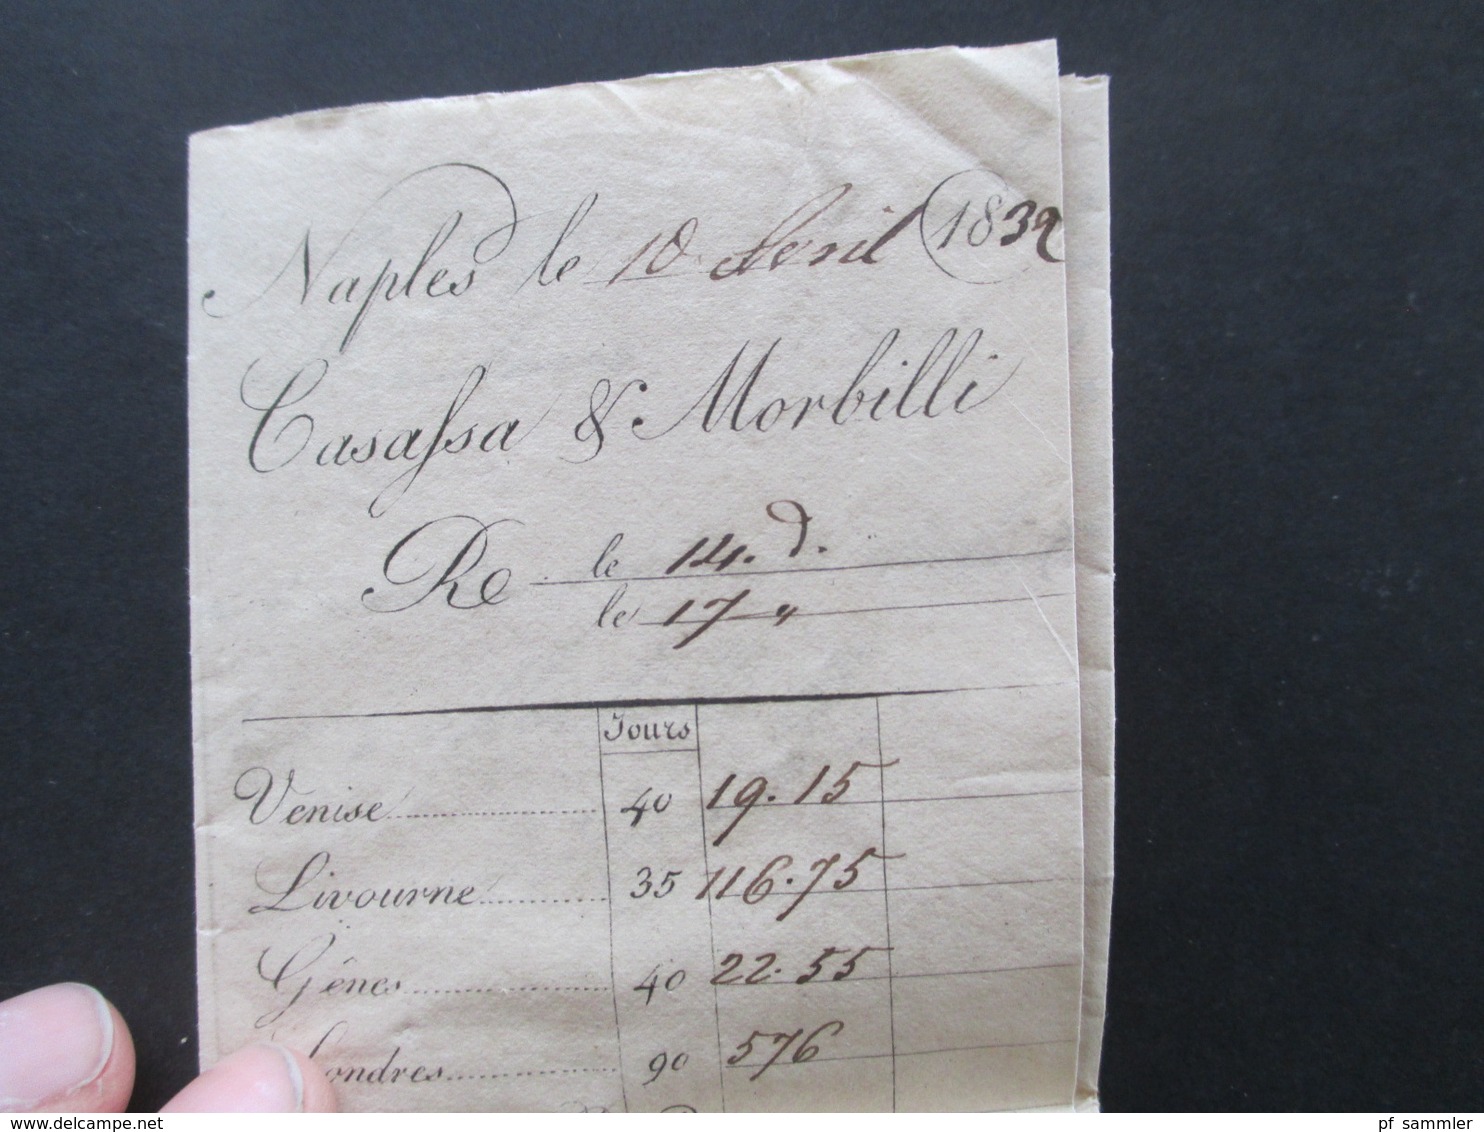 Naples le 10 Avril 1839
Casassa & Morbilli
Re le 14. d.
le 17 "
Jours
Venise 40 19.15
Livourne 35 116.75
Gênes 40 22.55
Londres 90 576
pf sammler